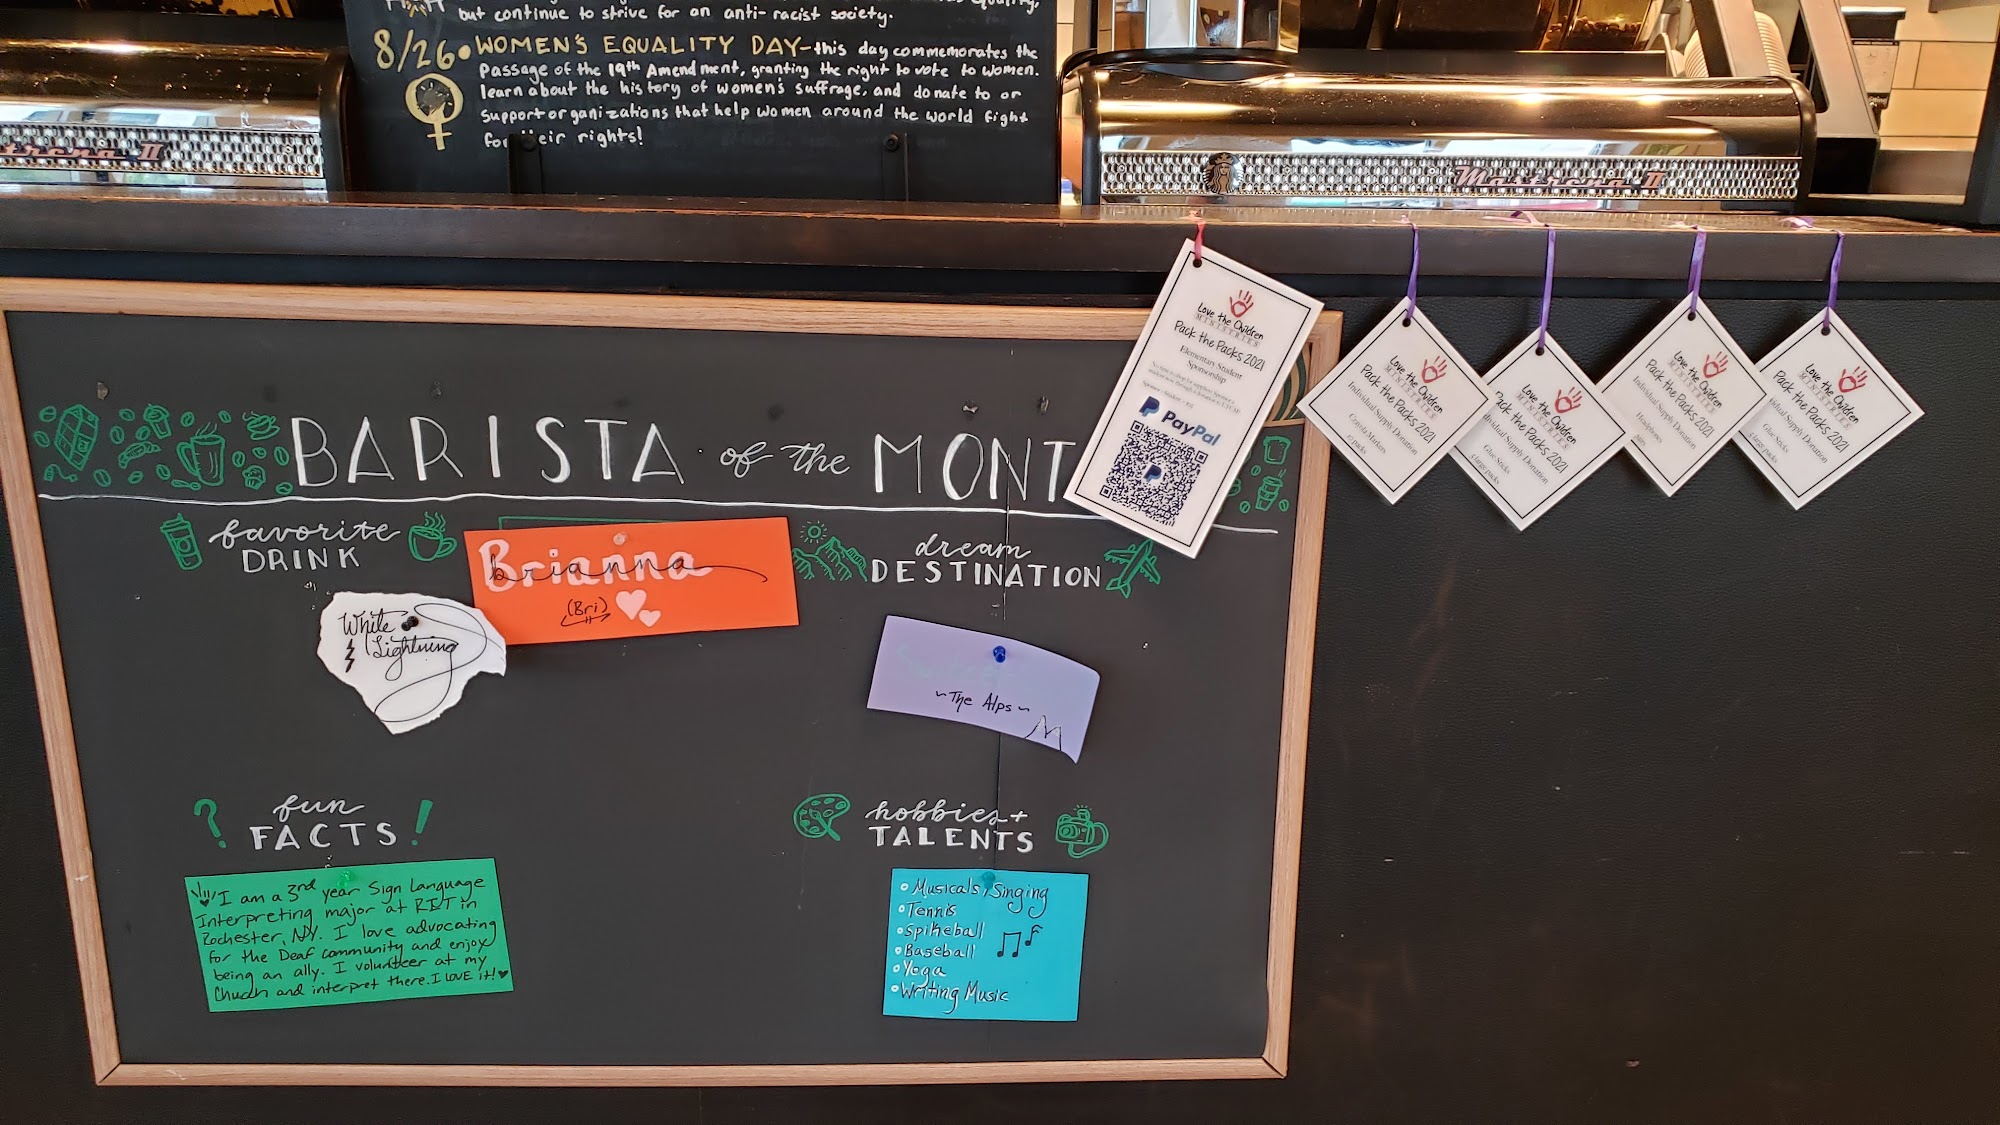 but continue to strive for an anti-racist society.
8/26• WOMEN'S EQUALITY DAY—this day commemorates the
passage of the 19th Amendment, granting the right to vote to women.
learn about the history of women's suffrage, and donate to or
support organizations that help women around the world fight
for their rights!
Mastrena II
BARISTA of the MONT
favorite
DRINK
White
Lightning
Brianna
brianna
(Bri)
dream
DESTINATION
~The Alps~
fun
FACTS
? !
I am a 3rd year Sign Language
Interpreting major at RIT in
Rochester, NY. I love advocating
for the Deaf community and enjoy
being an ally. I volunteer at my
Church and interpret there. I LOVE it!
hobbies +
TALENTS
Musicals, Singing
Tennis
Spikeball
Baseball
Yoga
Writing Music
Love the Children
MINISTRIES
Pack the Packs 2021
Elementary Student
Sponsorship
PayPal
Love the Children
MINISTRIES
Pack the Packs 2021
Individual Supply Donation
Crayola Markers
Love the Children
MINISTRIES
ack the Packs 2021
dividual Supply Donation
Glue Sticks
Love the Children
MINISTRIES
Pack the Packs 2021
Individual Supply Donation
Headphones
Love the Children
MINISTRIES
Pack the Packs 2021
Supply Donation
Glue Sticks